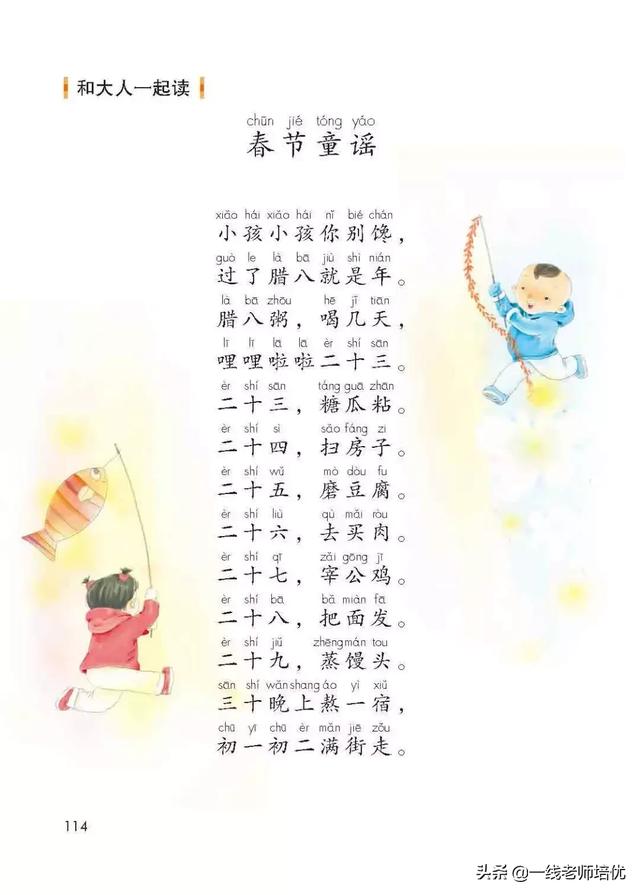 和大人一起读
chūn jié tóng yáo
春节童谣
xiǎo hái xiǎo hái nǐ bié chán
小孩小孩你别馋，
guò le là bā jiù shì nián
过了腊八就是年。
là bā zhōu hē jǐ tiān
腊八粥，喝几天，
lī lī lā lā èr shí sān
哩哩啦啦二十三。
èr shí sān táng guā zhān
二十三，糖瓜粘。
èr shí sì sǎo fáng zi
二十四，扫房子。
èr shí wǔ mò dòu fu
二十五，磨豆腐。
èr shí liù qù mǎi ròu
二十六，去买肉。
èr shí qī zǎi gōng jī
二十七，宰公鸡。
èr shí bā bǎ miàn fā
二十八，把面发。
èr shí jiǔ zhēng mán tou
二十九，蒸馒头。
sān shí wǎn shang áo yì xiǔ
三十晚上熬一宿，
chū yī chū èr mǎn jiē zǒu
初一初二满街走。
114
头条 @一线老师培优